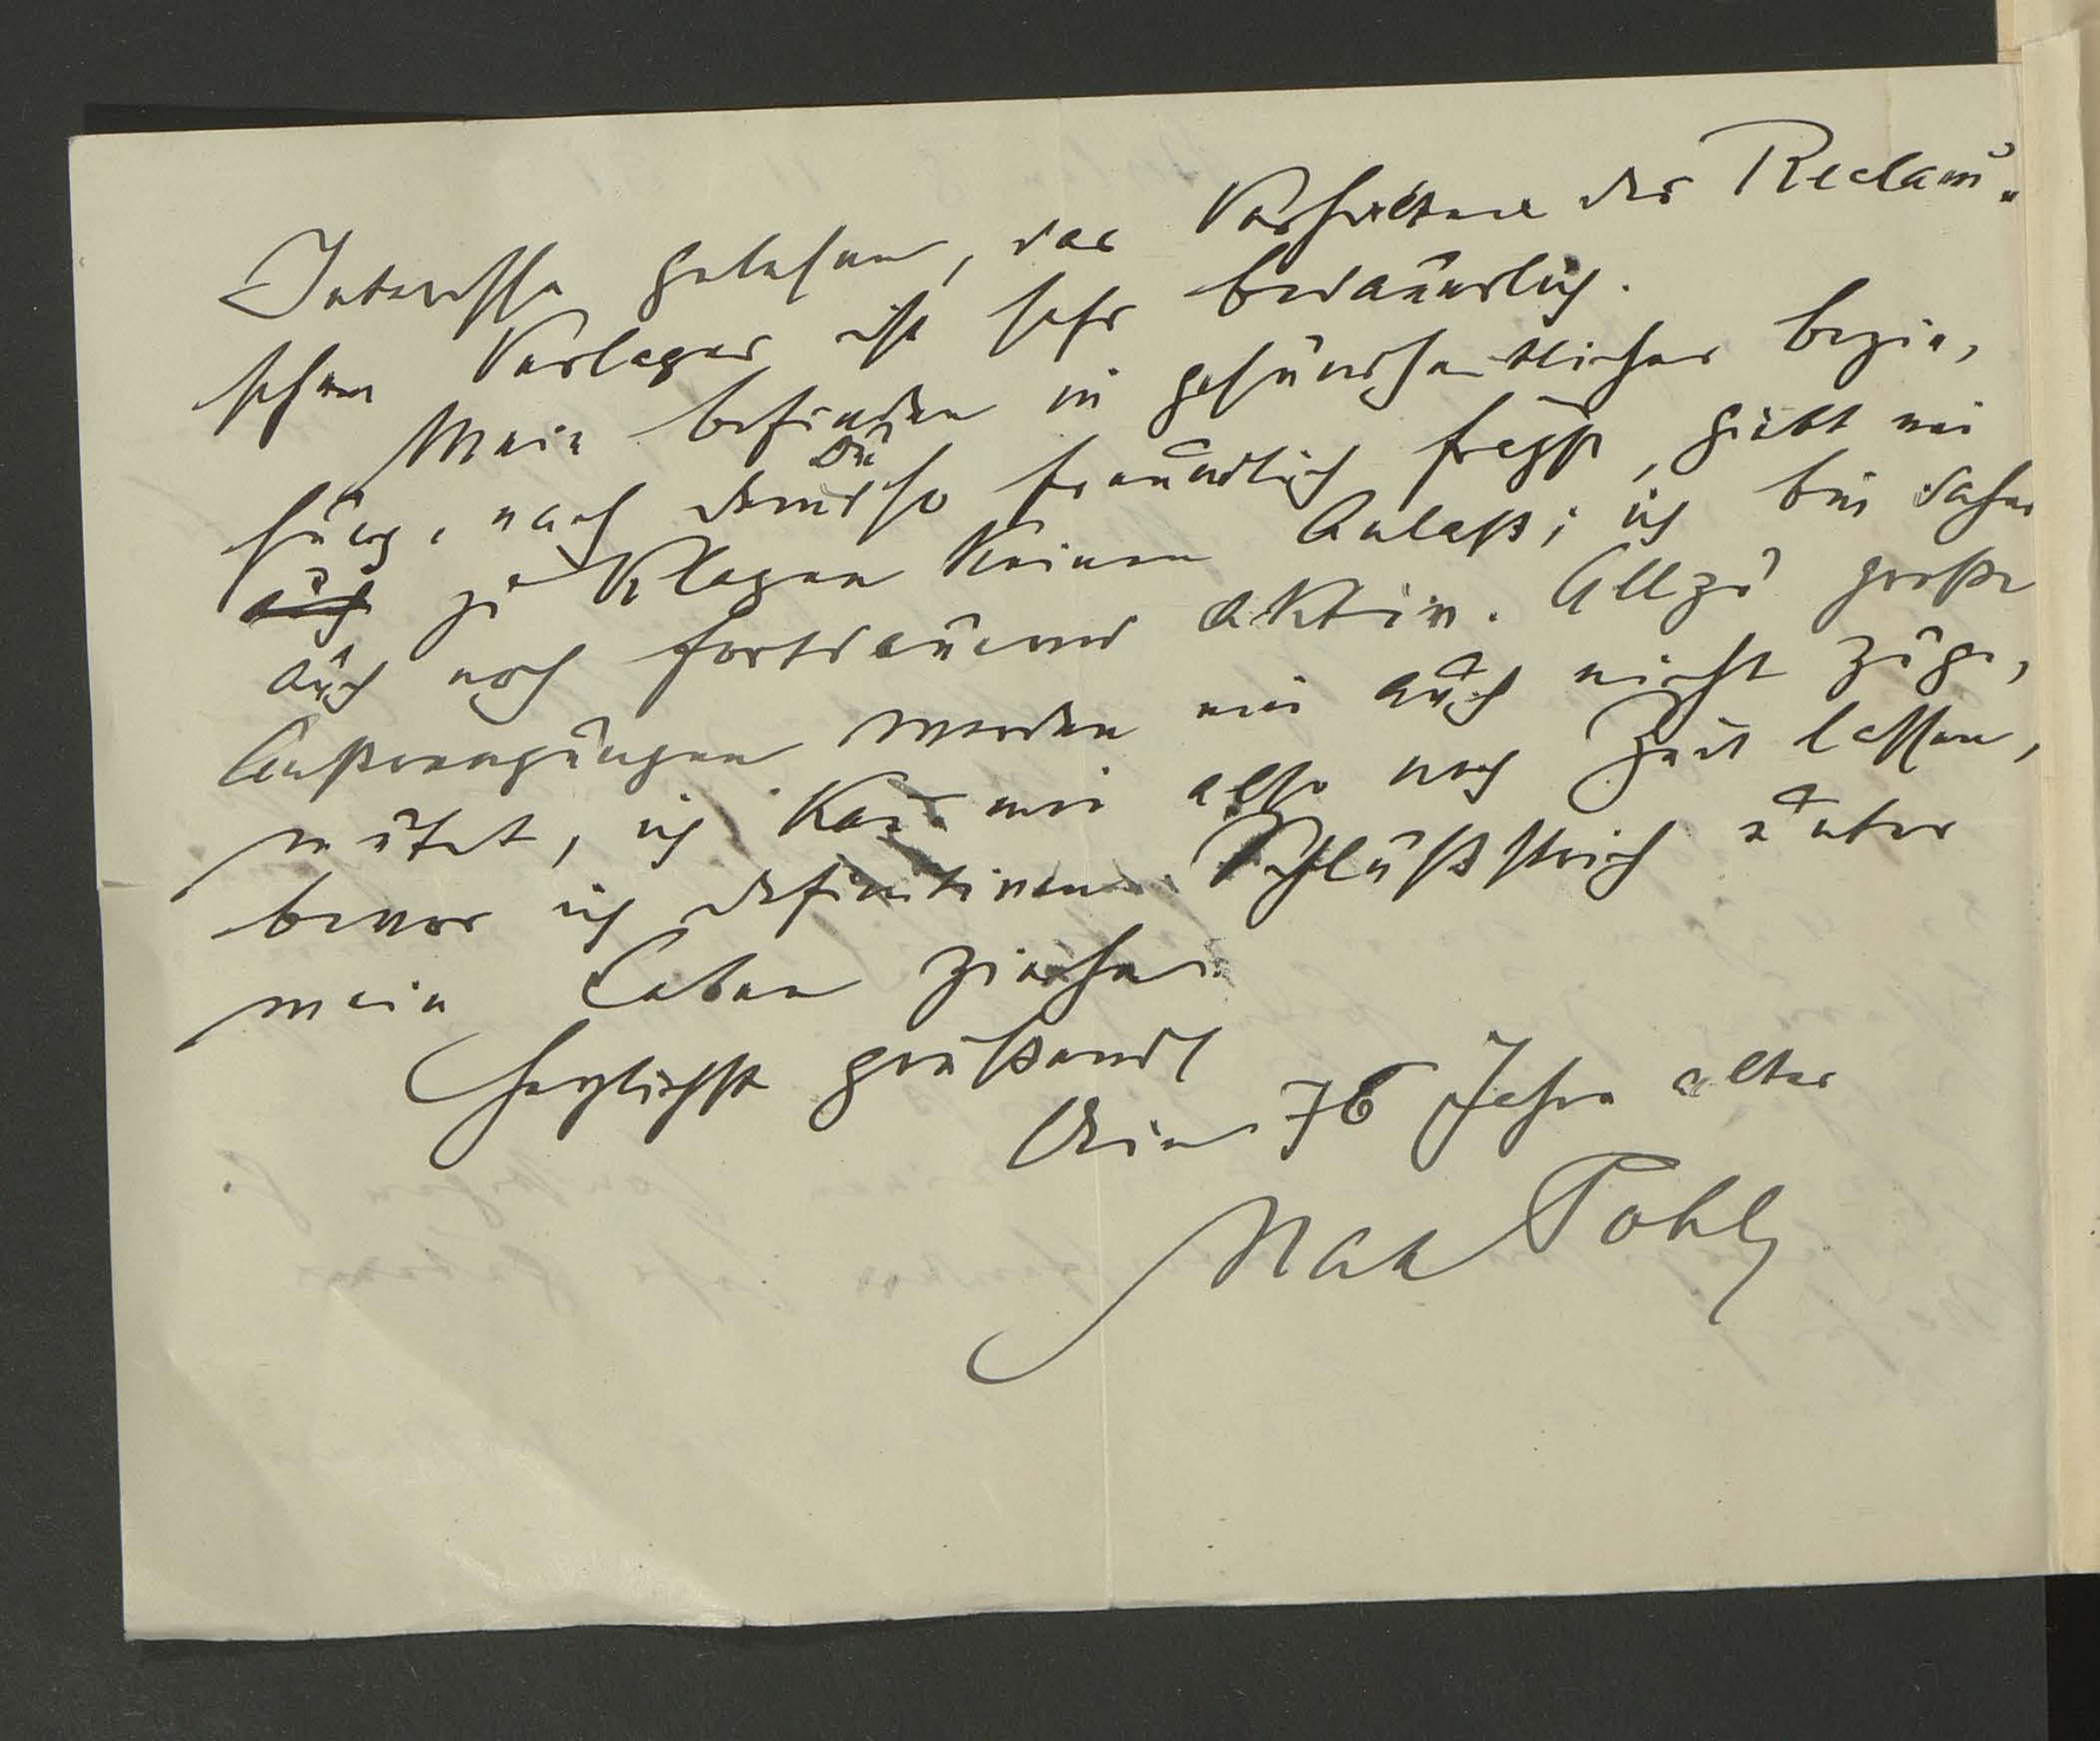 Interesse gelesen, das Verhalten des Reclam'-
schen Verlages ist sehr bedauerlich.
Mein Befinden in gesundheitlicher Bezie-
hung, nach dem Du so freundlich fragst, giebt mir
auch zu Klagen keinen Anlaß; ich bin daher
auch noch fortdauernd aktiv. Allzu große
Anstrengungen werden mir auch nicht zuge-
mutet, ich kan̄ mir also noch Zeit lassen,
bevor ich definitiven Schlußstrich unter
mein Leben ziehe.
Herzlichst grüßend
Dein 76 Jahre alter
Max Pohl